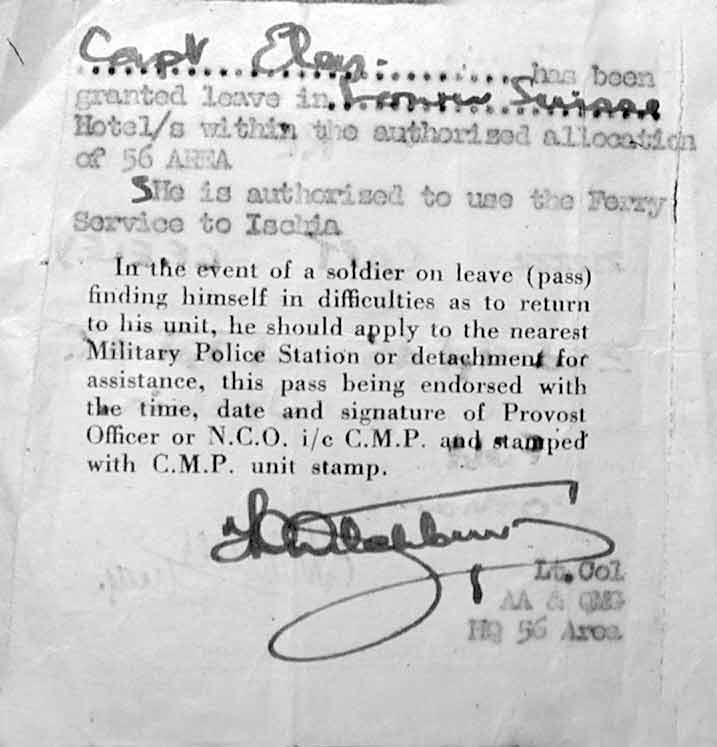 Capt Eley. has been
granted leave in Suisse
Hotel/s within the authorised allocation
of 56 AREA
SHe is authorised to use the Ferry
Service to Ischia
In the event of a soldier on leave (pass)
finding himself in difficulties as to return
to his unit, he should apply to the nearest
Military Police Station or detachment for
assistance, this pass being endorsed with
the time, date and signature of Provost
Officer or N.C.O. i/c C.M.P. and stamped
with C.M.P. unit stamp.
Lt.Col
AA & QMG
HQ 56 Area